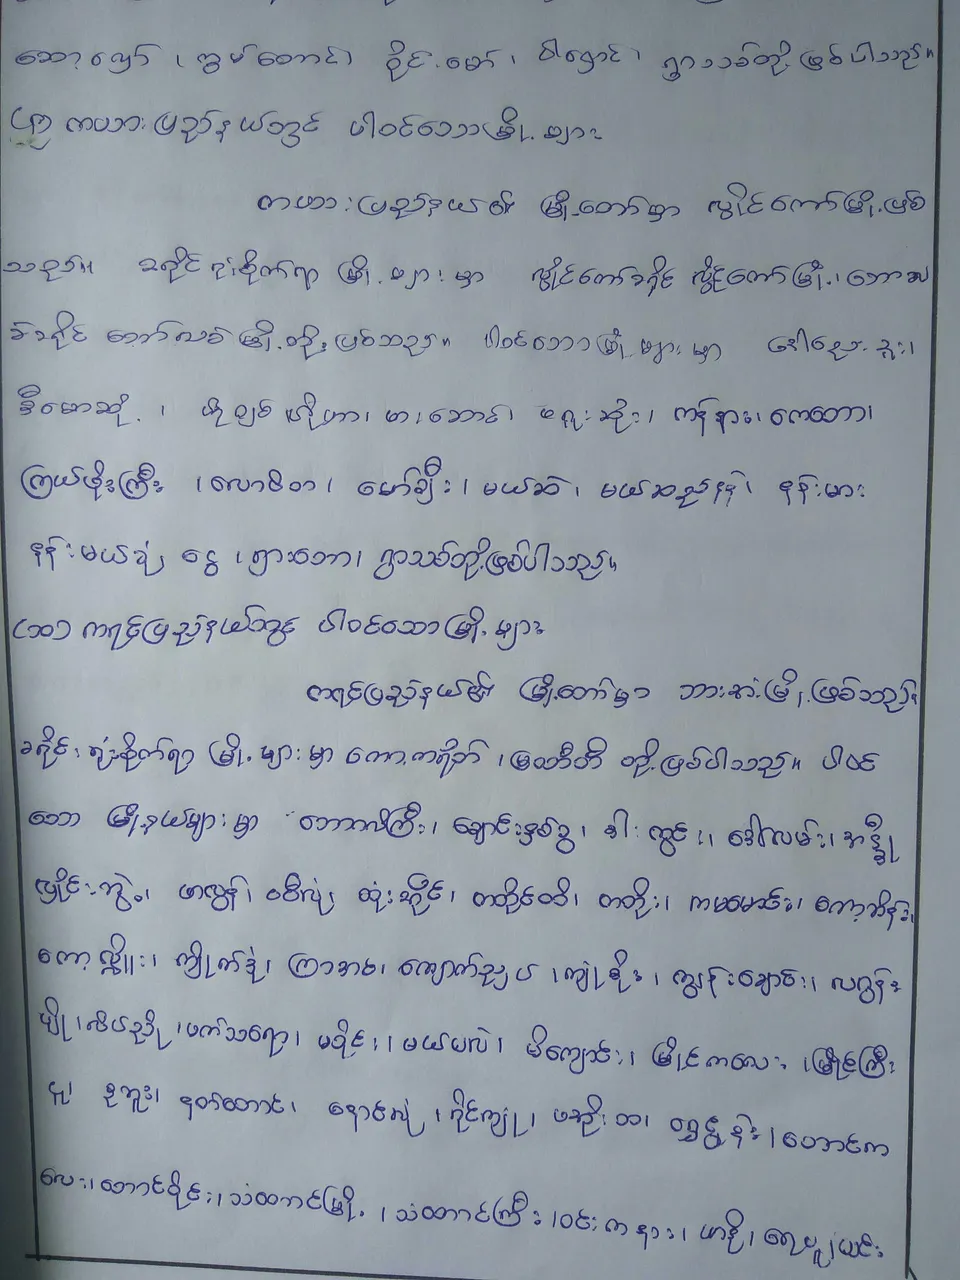 ဆော့လော် ၊ ကွမ်တောင်၊ ဝိုင်းမော် ၊ ဝါရှောင် ၊ ရွာသစ်တို့ ဖြစ်ပါသည်။
(၅) ကယားပြည်နယ်တွင် ပါဝင်သောမြို့များ
ကယားပြည်နယ်၏ မြို့တော်မှာ လွိုင်ကော်မြို့ဖြစ်
သည်။ ခရိုင်ရုံးစိုက်ရာ မြို့များမှာ လွိုင်ကော်ခရိုင် လွိုင်ကော်မြို့၊ ဘောလ
ခဲခရိုင် ဘော်လခဲမြို့တို့ ဖြစ်သည်။ ပါဝင်သောမြို့များမှာ ဒေါညေးခူး၊
ဒီမောဆို့ ၊ ဟိုဟာ၊ ဖားဆောင်၊ ဖရူးဆိုး၊ ကန်နား၊ ကေထော၊
ကြယ်ဖိုးကြီး ၊ လောပိတ ၊ မော်ချီး ၊ မယ်ဆဲ ၊ မယ်ဆည်နန် ၊ နန်းမား
နန်းမယ်ခုံ ငွေ ၊ ရွာသစ်တို့ဖြစ်ပါသည်။
(ဃ) ကရင်ပြည်နယ်တွင် ပါဝင်သောမြို့များ
ကရင်ပြည်နယ်၏ မြို့တော်မှာ ဘားအံမြို့ဖြစ်သည်။
ခရိုင်ရုံးစိုက်ရာ မြို့များမှာ ကော့ကရိတ် ၊ မြဝတီတို့ ဖြစ်ပါသည်။ ပါဝင်
သော မြို့နယ်များမှာ ဘောဂလိကြီး၊ ချောင်းနှစ်ခွ၊ ဒါးကွင်း၊ ဒေါလမ်း၊
မြိုင်ဘွဲ့၊ ဖာလွန်၊ ဝစီလုံ၊ ထုံးအိုင်၊ တတိုင်တိ၊ တတိုး၊ ကမမောင်း၊ ကော့ဘိန်း၊
ကော့လျှူး၊ ကျိုက်ဒုံ၊ ကြာအင်း၊ ကျောက်ညှပ် ၊ ကျုံစိုး ၊ ကျွန်းချောင်း၊ လဂွန်း
ဗျို ၊ လိပ်ဒို ၊ ဖက်သရော၊ မဝိုင်း၊ မယ်ပလဲ ၊ မိကျောင်း၊ မြိုင်ကလေး ၊ မြိုင်ကြီး
ငူ၊ နဘူး၊ နတ်တောင်၊ နောင်လုံ ၊ ပိုင်ကျုံ ၊ ဖအိုးတာ၊ ရွှေဂွန်း ၊ တောင်က
လေး၊ တောင်ဝိုင်း၊ သံတောင်မြို့ ၊ သံတောင်ကြီး ၊ ဝင်းကနား၊ ယာဒို၊ ရေပူ၊ ယင်း